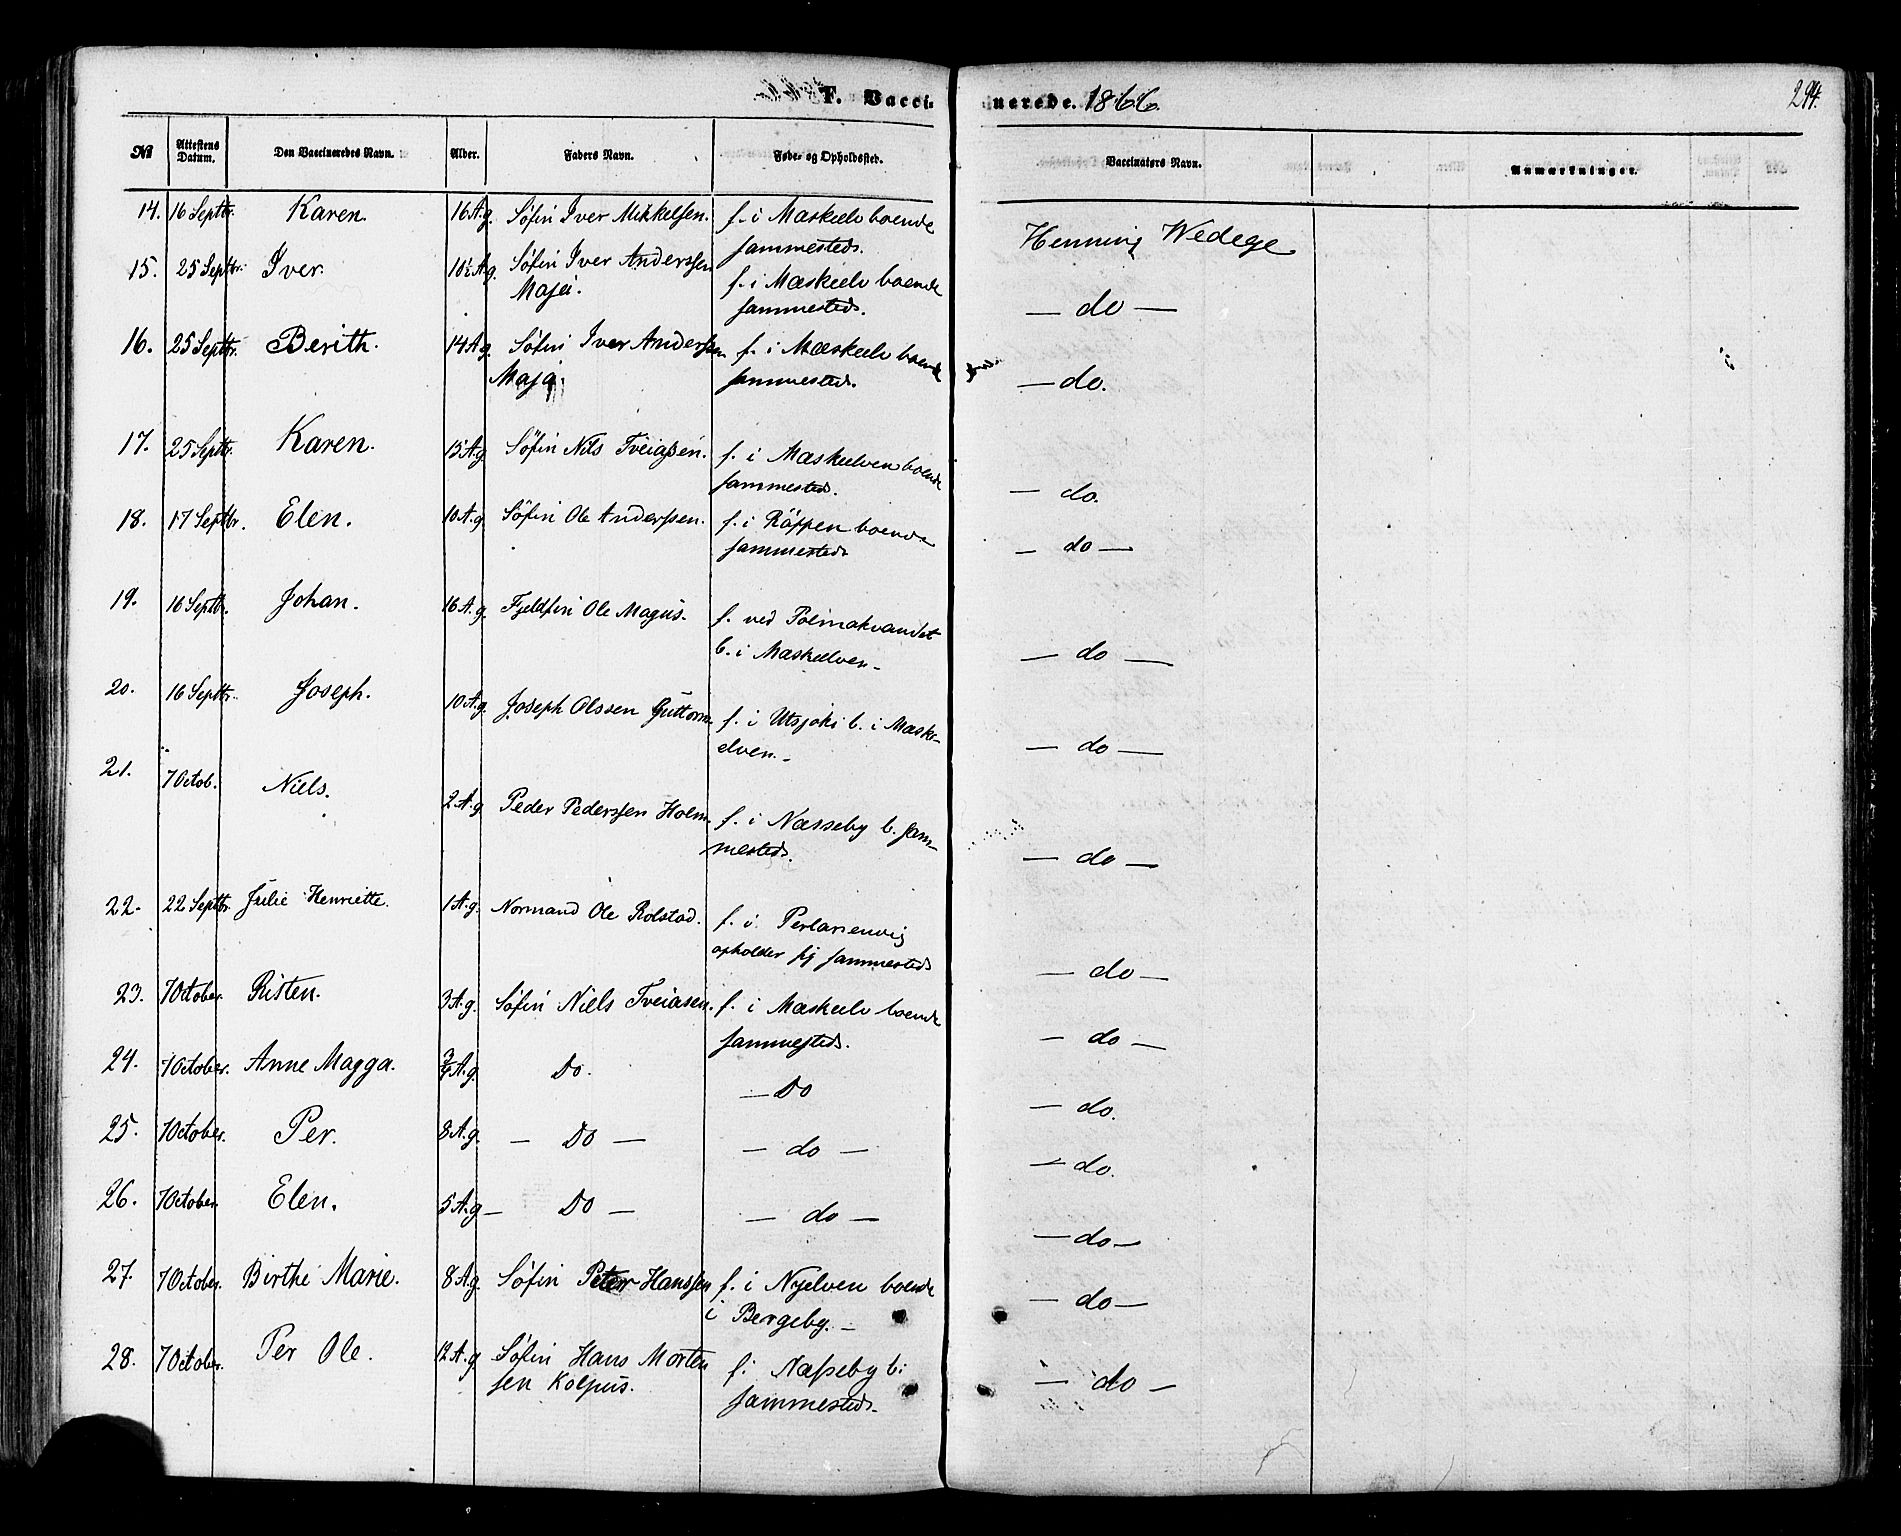 F. Vacci-
nerede. 1866.
294.
No
Attestens Datum.
Den Vaccineredes Navn.
Alder.
Faders Navn.
Føde- og Opholdssted.
Vaccinatørs Navn.
Anmærkninger.
14. 16 Septbr. Karen. 16 A.g. Søfin Iver Mikkelsen. f. i Mæskelv boende
sammesteds. Henning Wedege
15. 25 Septbr. Iver. 10½ A.g. Søfin Iver Anderssen f. i Mæskelv boende
Maja. sammesteds. — do —
16. 25 Septbr. Berith. 14 A.g. Søfin Iver Anderssen f. i Mæskelv boende
Maja. sammesteds. — do.
17. 25 Septbr. Karen. 15 A.g. Søfin Nils Tveiassen. f. i Mæskelven boende
sammested. — do.
18. 17 Septbr. Elen. 10 A.g. Søfin Ole Anderssen. f. i Røppen boende
sammesteds — do —
19. 16 Septbr. Johan. 16 A.g. Fjeldfin Ole Magus. f. ved Polmakvandet
b. i Mæskelven — do —
20. 16 Septbr. Joseph. 10 A.g. Joseph Olssen Guttorm. f. i Utsjoki b. i Mæsk-
elven. — do —
21. 7 Octob. Niels. 2 A.g. Peder Pederssen Holm. f. i Næsseby b. sam-
mesteds. — do —
22. 22 Septbr. Julie Henriette. 1 A.g. Normand Ole Rolstad. f. i Perlarsenvig
opholder sig sammesteds — do —
23. 7 October. Risten. 3 A.g. Søfin Niels Tveiasen. f. i Mæskelv boende
sammesteds. — do —
24. 7 October. Anne Magga. ¾ A.g. Do. — Do — do.
25. 7 October. Per. 8 A.g. — Do — — do — — do.
26. 7 October. Elen. 5 A.g — Do — — do — — do —
27. 7 October. Birthe Marie. 8 A.g. Søfin Peter Hanssen f. i Nyelven boende
i Bergeby. — — do —
28. 7 October. Per Ole. 12 A.g Søfin Hans Morten f. Næsseby b.
sen Kolpus. sammesteds. — do —